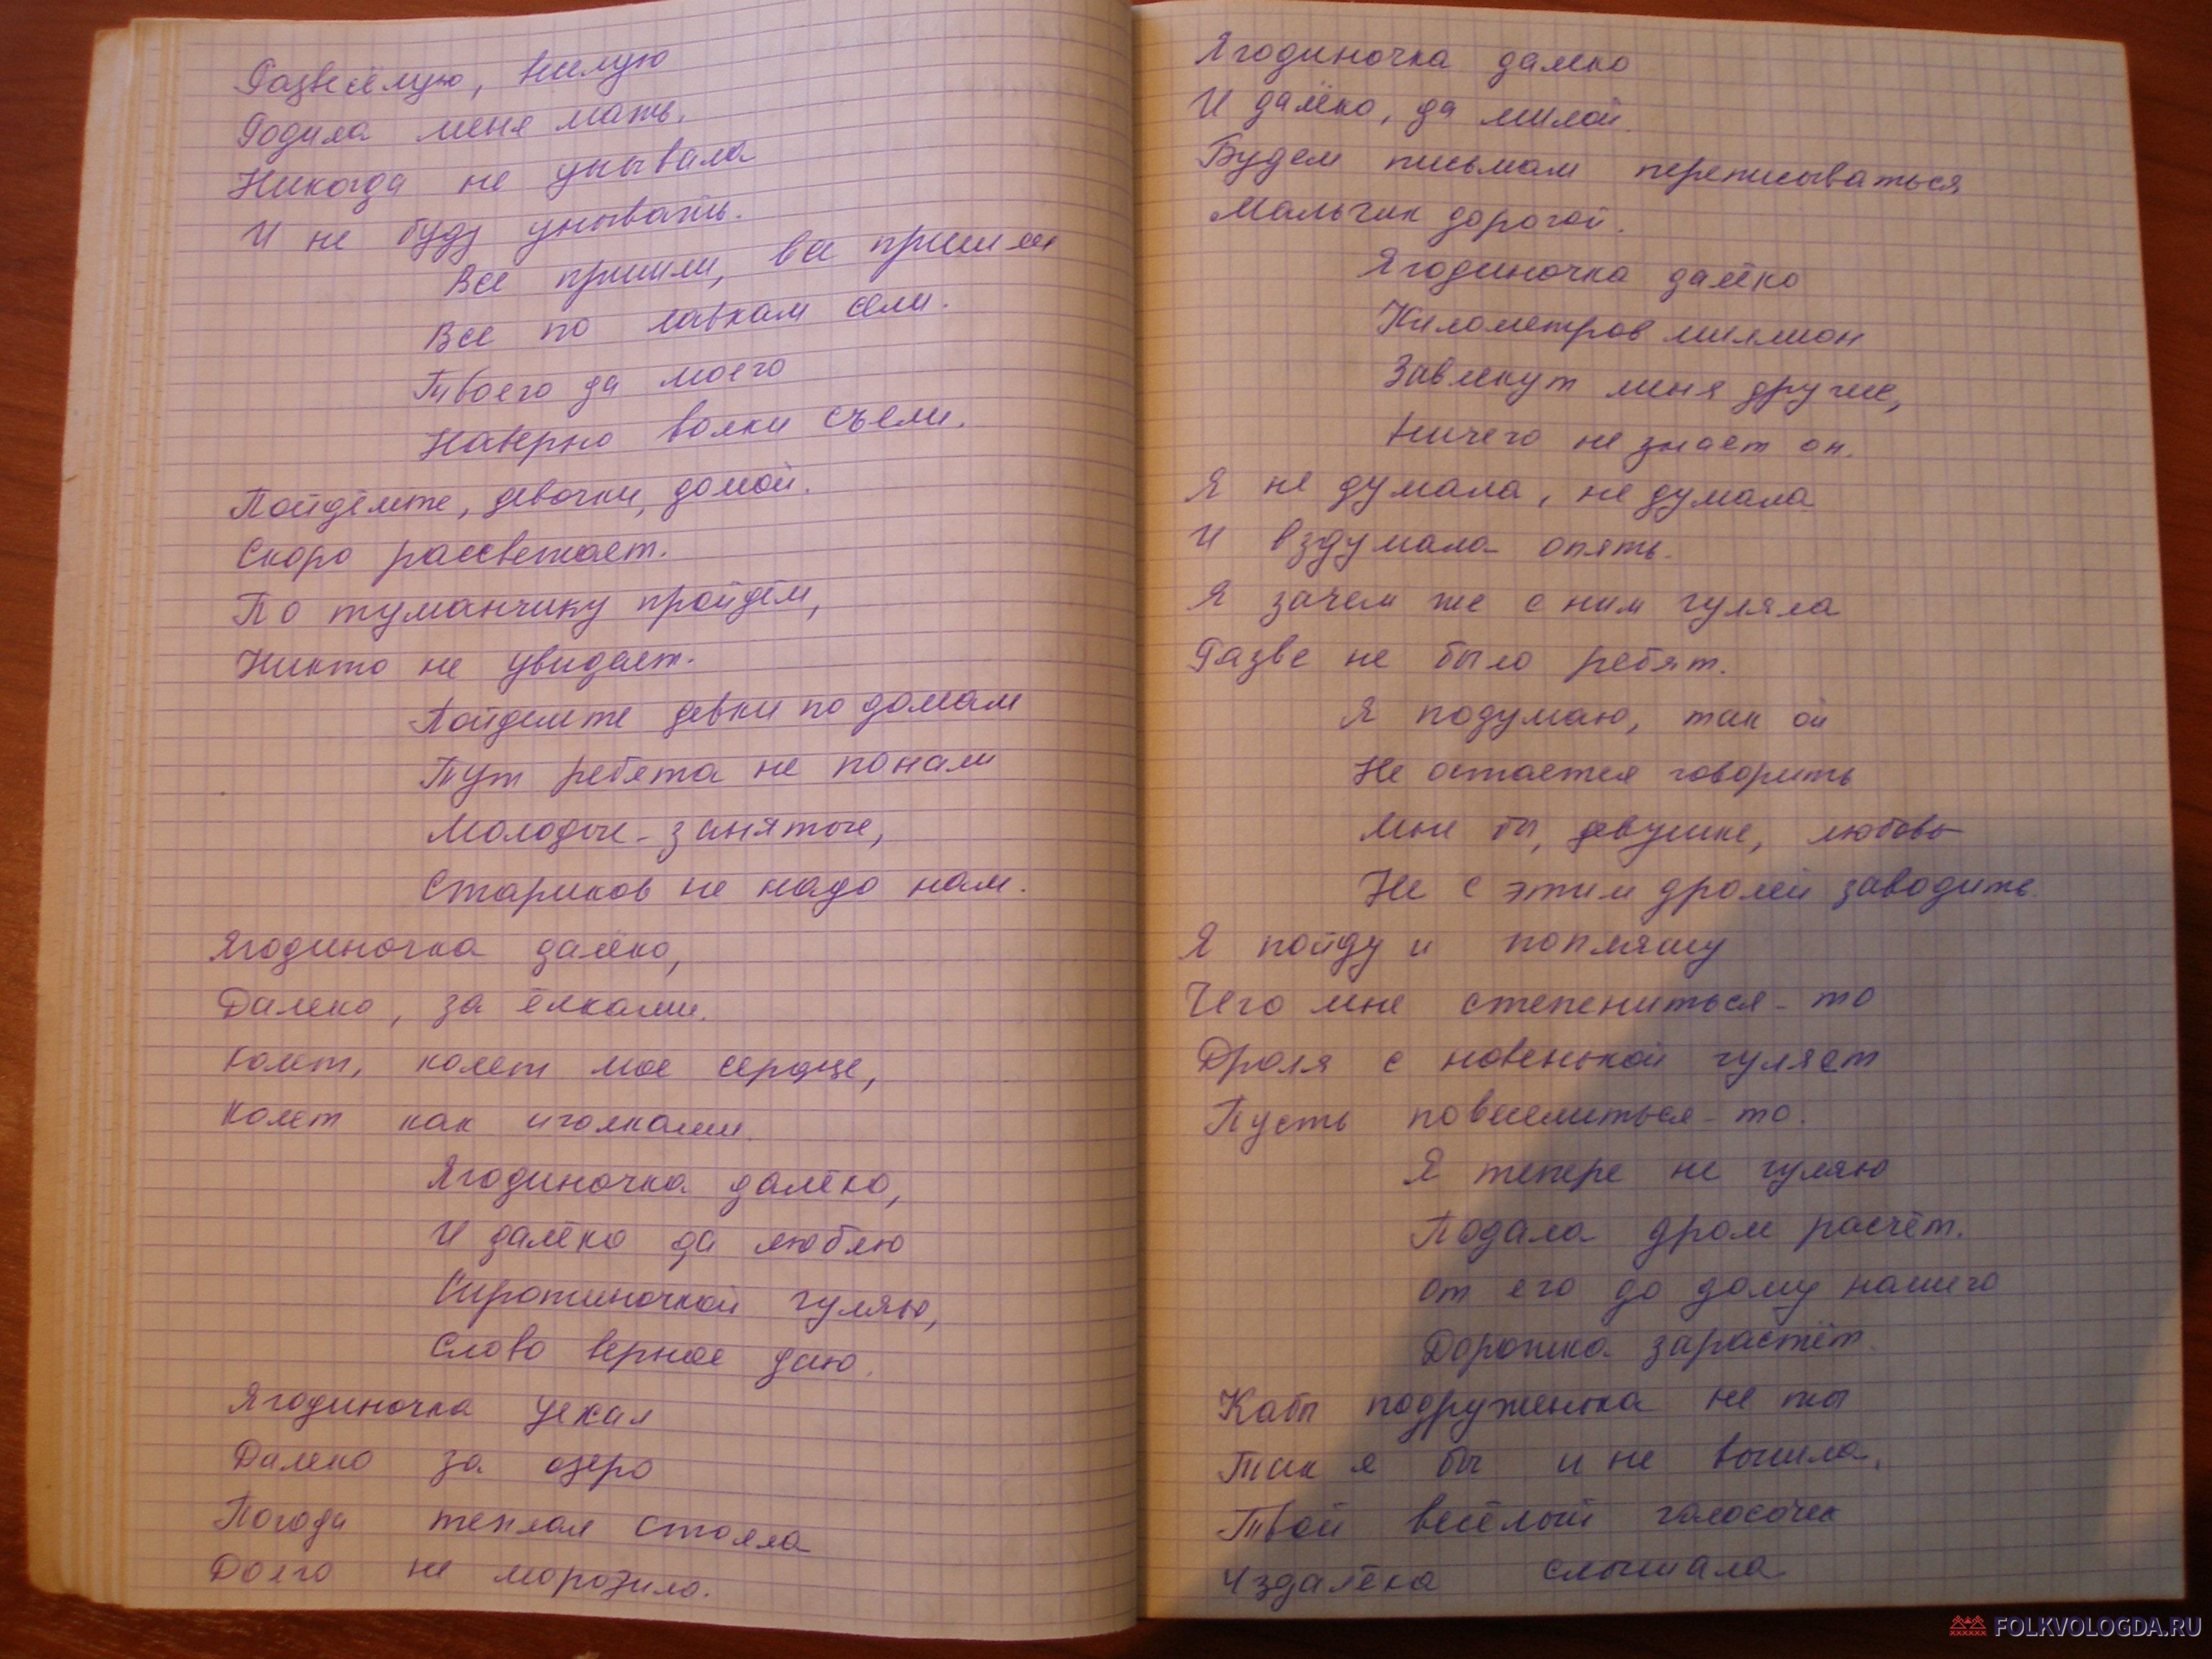 Развесёлую, веселую
Родила меня мать.
Никогда не унывала
И не буду унывать.
Все пришли, все пришли
Все по лавкам сели.
Твоего да моего
Наверно волки съели.
Пойдёмте, девочки, домой.
Скоро рассветает.
По туманчику пройдём,
Никто не увидает.
Пойдемте девки по домам
Тут ребята не по нам
Молодые - занятые,
Стариков не надо нам.
Ягодиночка далёко,
Далеко, за ёлками.
Колет, колет мое сердце,
Колет как иголками.
Ягодиночка далёко,
И далёко да люблю
Сиротиночкой гуляю,
Слово верное даю.
Ягодиночка уехал
Далеко за озеро
Погода теплая стояла
Долго не морозило.
Ягодиночка далеко
И далёко, да милой.
Будем письмам переписываться
Мальчик дорогой.
Ягодиночка далёко
Километров миллион
Завлекут меня другие,
Ничего не знает он.
Я не думала, не думала
И вздумала опять.
Я зачем же с ним гуляла
Разве не было ребят.
Я подумаю, так ой
Не остается говорить
Мне бы, девушке, любовь
Не с этим дролей заводить.
Я пойду и попляшу
Чего мне степениться-то
Дроля с новенькой гуляет
Пусть повеселиться-то.
Я тепере не гуляю
Подала дроле расчёт.
От его до дому нашего
Дорожка зарастёт.
Кабы подруженька не ты
Так я бы и не вышла.
Твой весёлый голосочек
Издалёка слышала
FOLKVOLOGDA.RU